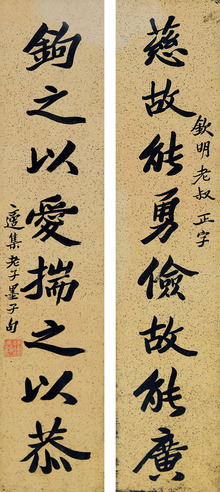 欽明老叔正字
慈故能勇儉故能廣
鉤之以愛揣之以恭
適集老子墨子句